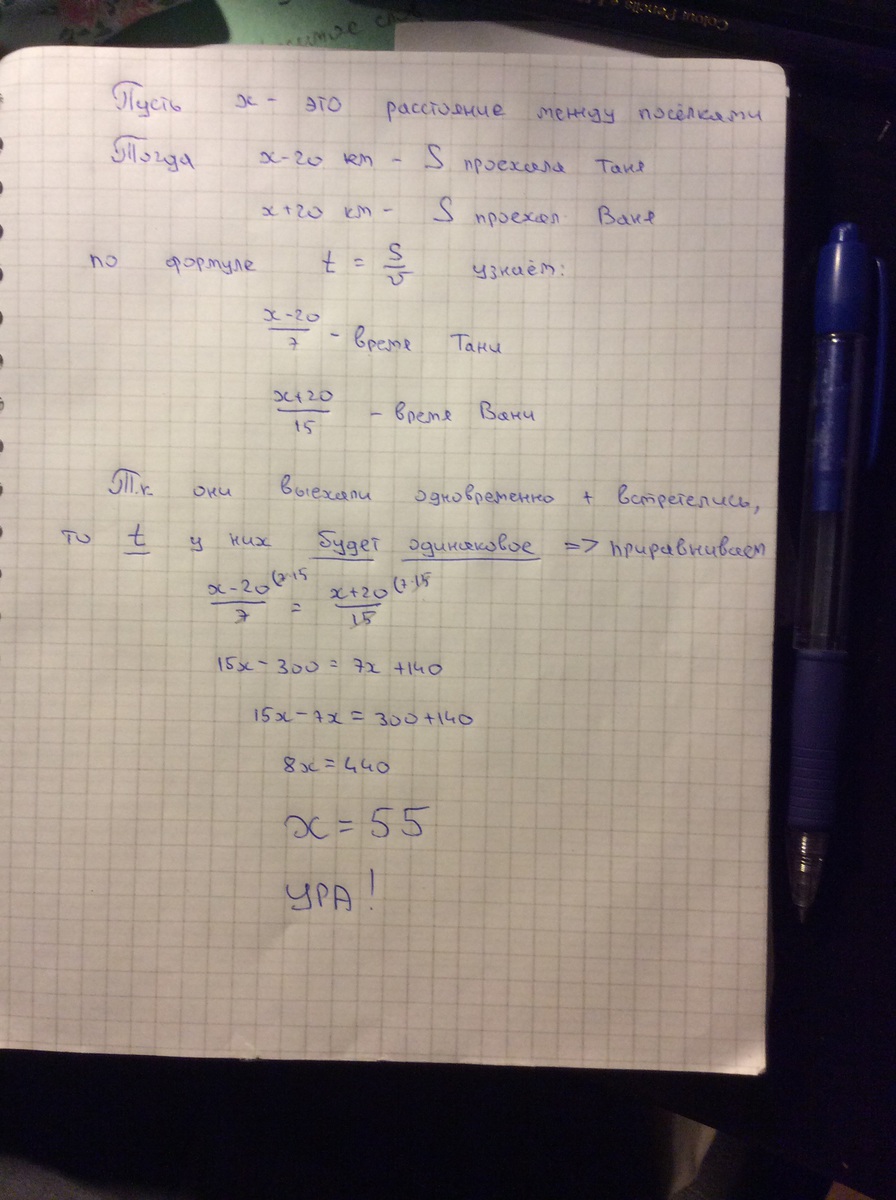 Colour Pencils
Пусть x - это расстояние между посёлками
Тогда x-20 км - S проехала Таня
x+20 км - S проехал Ваня
по формуле t = S/v узнаём:
x-20/7 - время Тани
x+20/15 - время Вани
Т.к. они выехали одновременно + встретелись,
то t у них будет одинаковое => приравниваем
x-20/7 (7·15 = x+20/15 (7·15
15x-300 = 7x+140
15x-7x = 300+140
8x=440
x=55
УРА!